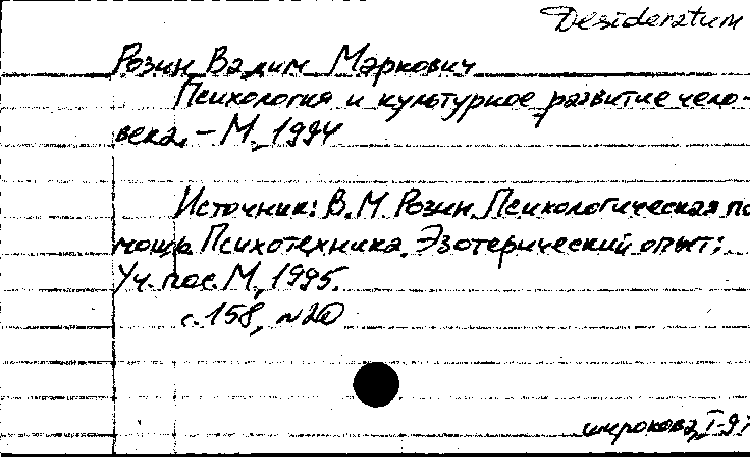 Desideratum
Розин Вадим Маркович
Психология и культурное развитие чело-
века. – М., 1994
Источник: В.М. Розин. Психологическая по
мощь. Психотехника. Эзотерический опыт:
Уч. пос. М., 1995.
с. 158, №20
широкова, I-97